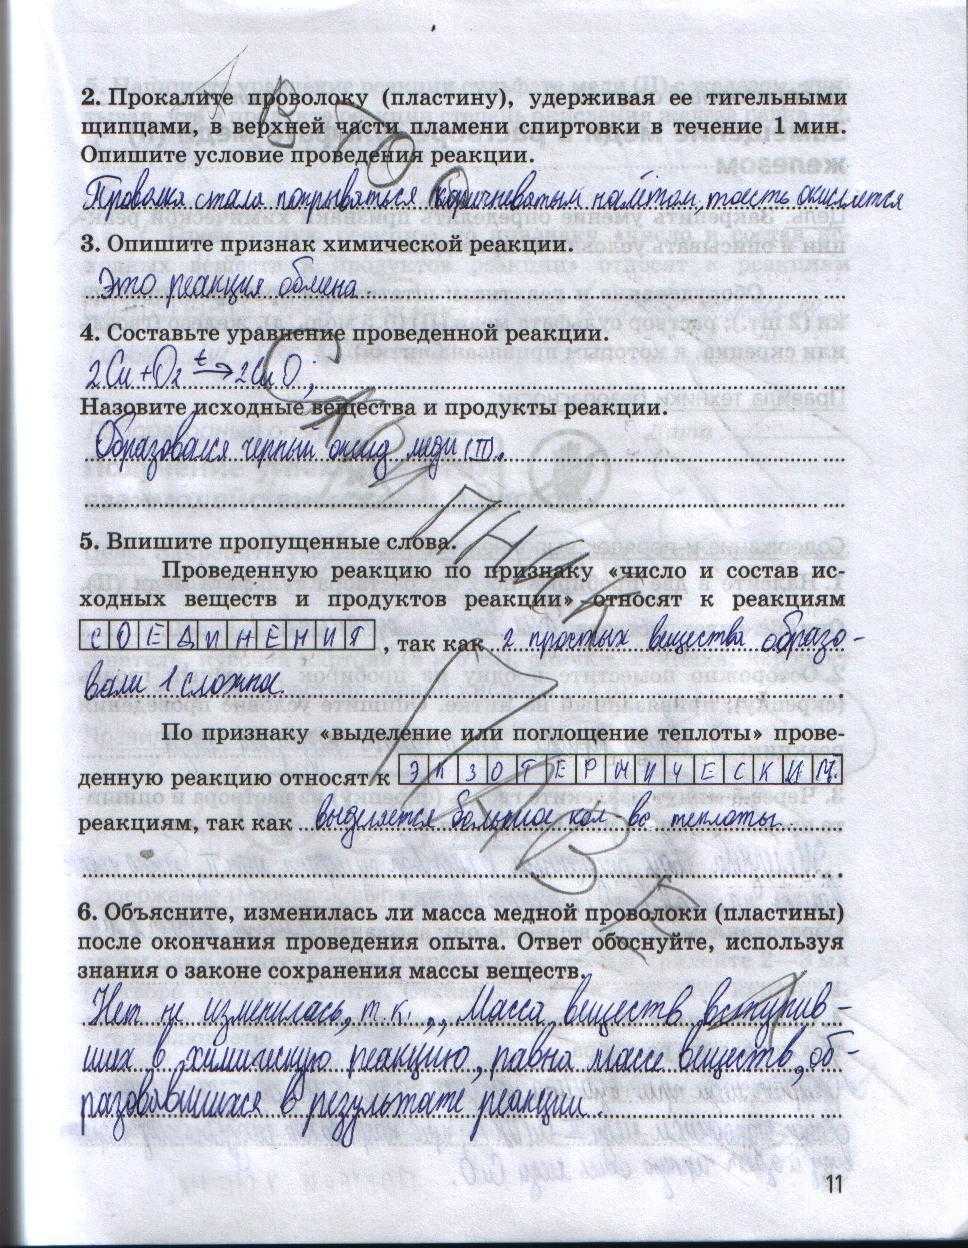 2. Прокалите проволоку (пластину), удерживая ее тигельными
щипцами, в верхней части пламени спиртовки в течение 1 мин.
Опишите условие проведения реакции.
стала покрываться коричневатым налётом, тоесть окисляется
3. Опишите признак химической реакции.
Это реакция обмена
4. Составьте уравнение проведенной реакции.
2Cu + O2 t→ 2CuO;
Назовите исходные вещества и продукты реакции.
Образовался черный оксид меди (II).
5. Впишите пропущенные слова.
Проведенную реакцию по признаку «число и состав ис-
ходных веществ и продуктов реакции» относят к реакциям
СОЕДИНЕНИЯ, так как 2 простых вещества образо-
вали 1 сложное.
По признаку «выделение или поглощение теплоты» прове-
денную реакцию относят к ЭКЗОТЕРМИЧЕСКИМ
реакциям, так как выделяется большое кол-во теплоты.
6. Объясните, изменилась ли масса медной проволоки (пластины)
после окончания проведения опыта. Ответ обоснуйте, используя
знания о законе сохранения массы веществ.
Нет не изменилась, т.к. ,,Масса веществ, вступив-
ших в химическую реакцию, равна массе веществ, об-
разовавшихся в результате реакции.
11